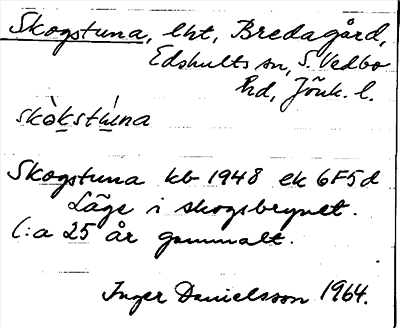 Skogstuna, lht, Bredagård,
Edshults sn, S. Vedbo
hd, Jönk. l.
skòkstùna
Skogstuna kb 1948 ek 6F5d
Läge i skogsbrynet.
C:a 25 år gammalt.
Inger Danielsson 1964.